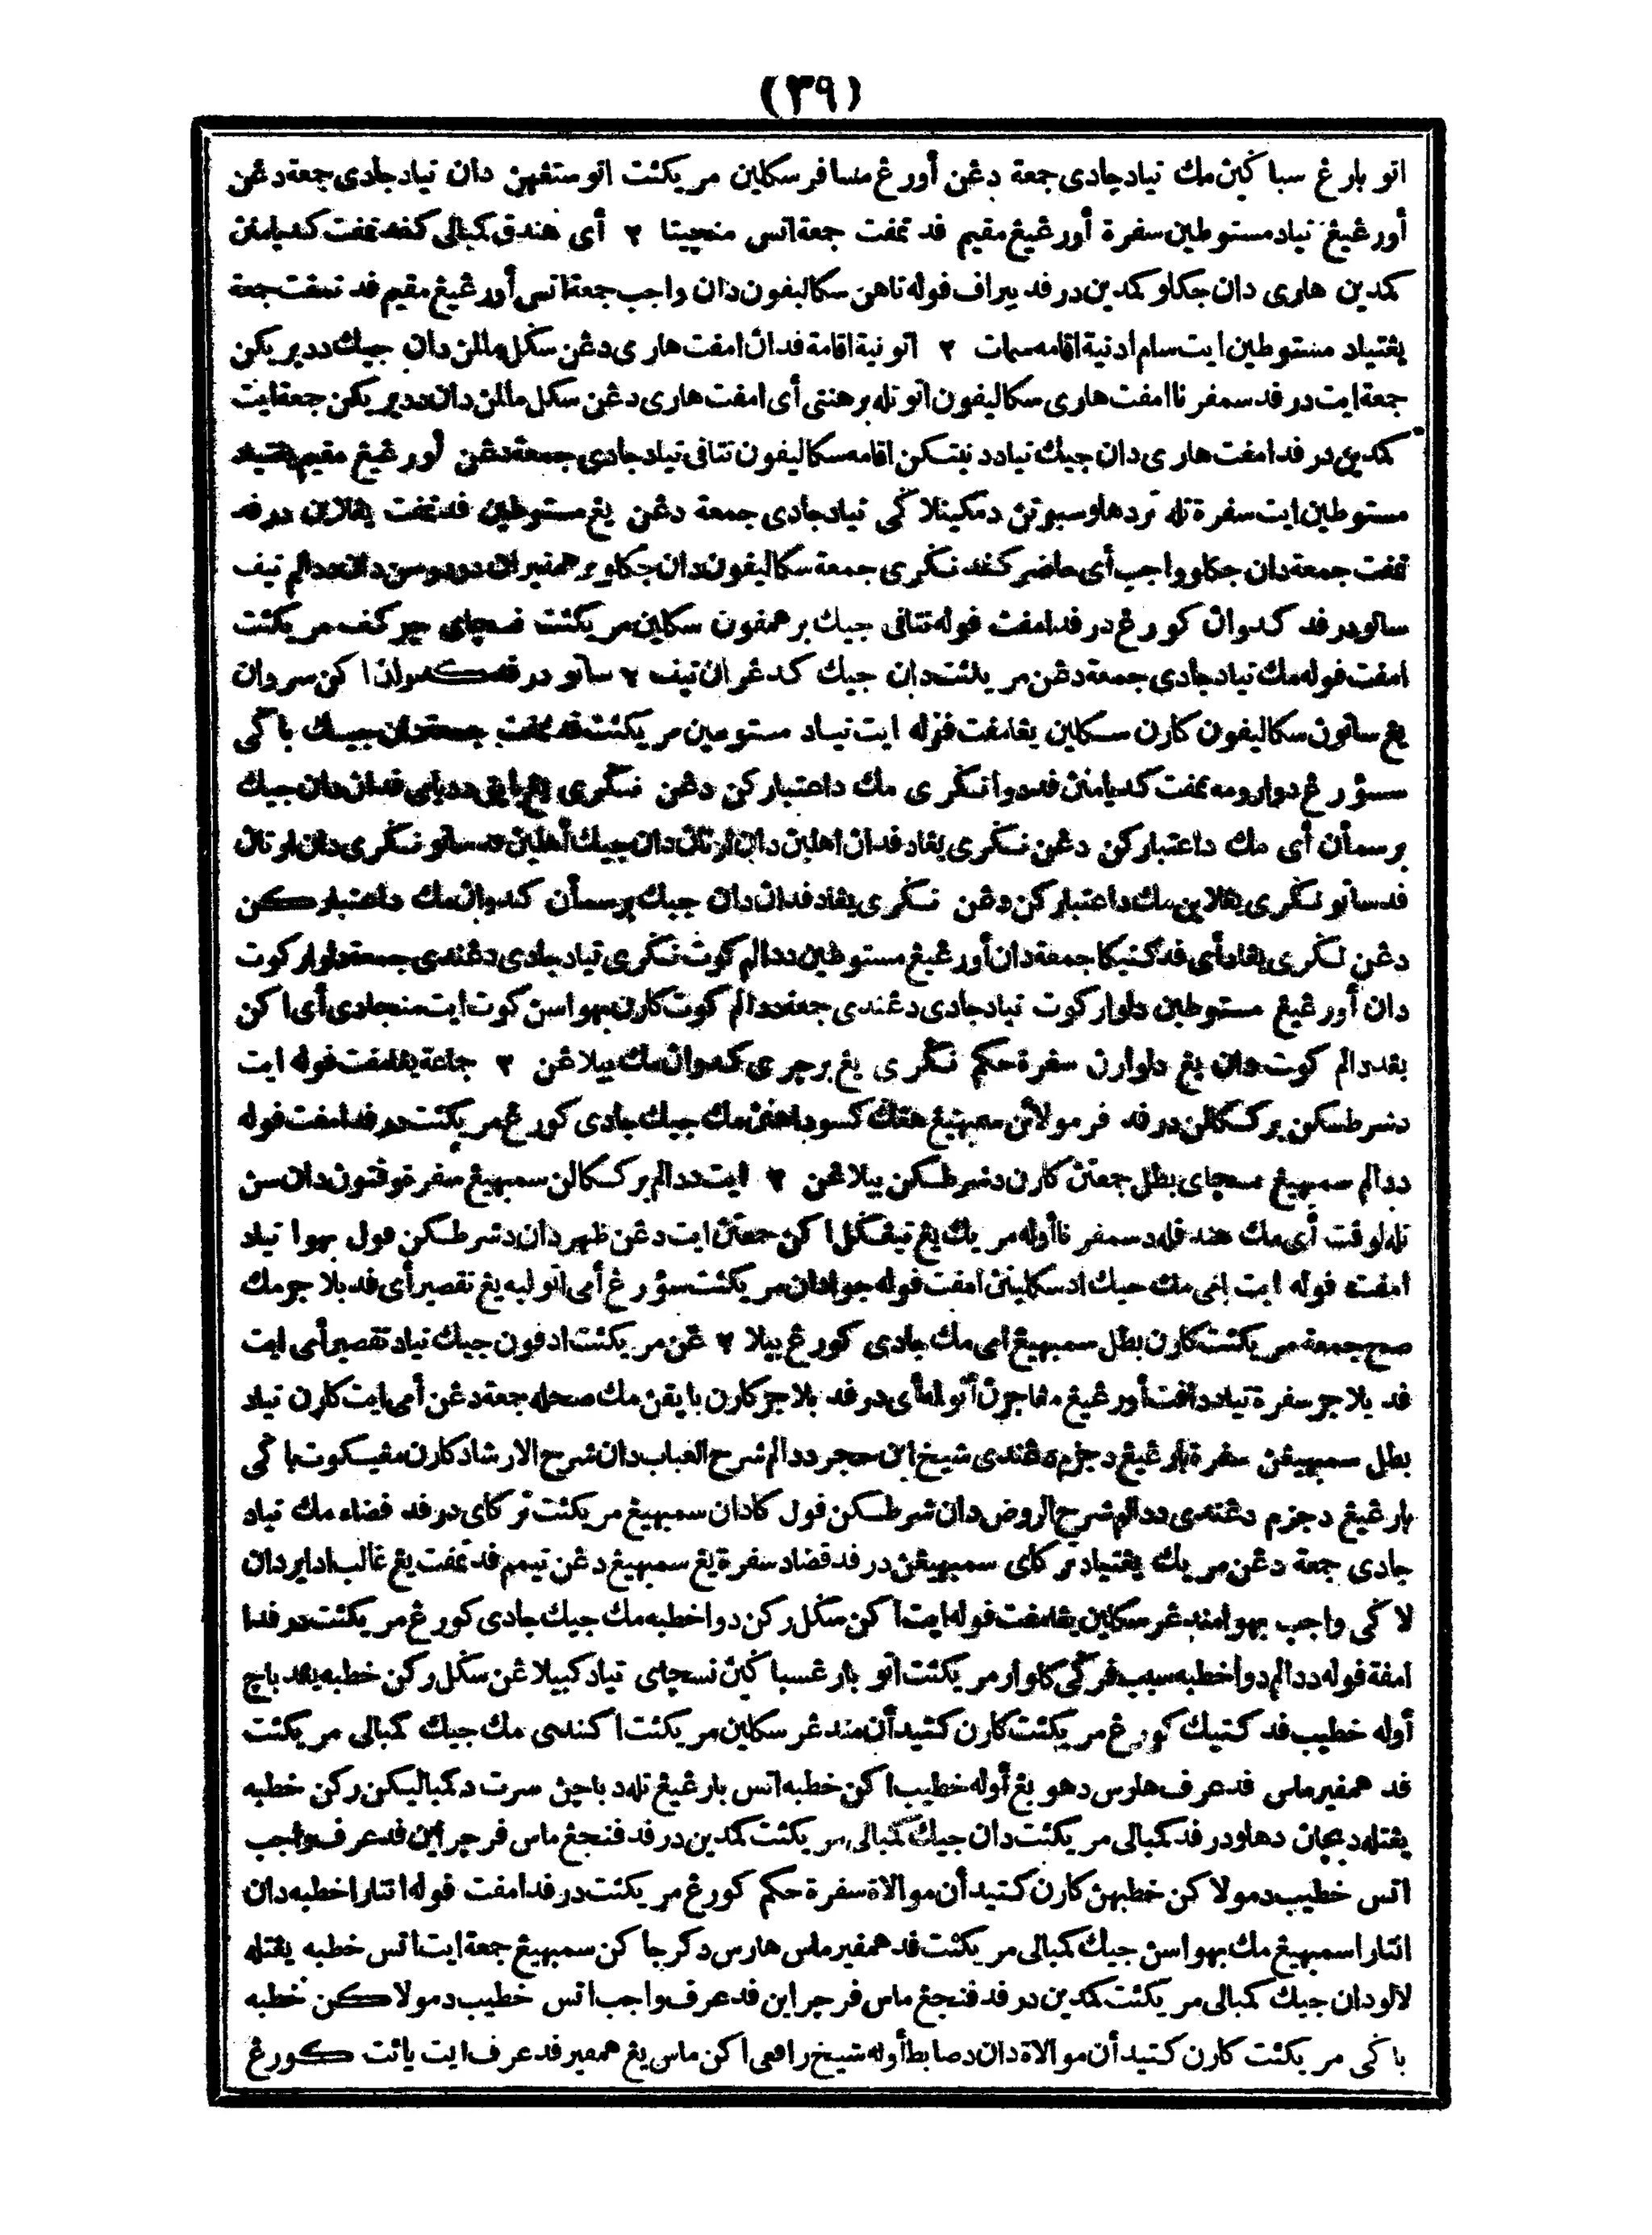 (٣٩)
اتو بارڠ سباڬين مك تياد جادي جمعة دڠن أورڠ مسافر سكلين مريكئت اتو ستڠهن دان تياد جادي جمعة دڠن
أورڠيڠ تياد مستوطين سفرة أورڠيڠ مقيم فد تمفت جمعة اتس منچيتا ٢ أي هندق كمبالي كفد تمفت كديامنن
كمدين هاري دان جكلو كمدين درفد ببراف فوله تاهن سكاليفون دان واجب جمعة اتس أورڠيڠ مقيم فد تمفت جمعة
يڠتياد مستوطين ايت سام اد نية اقامه سمات ٢ اتو نية اقامة فدان امفت هاري دڠن سڬل مالمن دان جيك ددير يكن
جمعة ايت درفد سمفرنا امفت هاري سكاليفون اتو تله برهنتي أي امفت هاري دڠن سڬل مالمن دان ددير يكن جمعة ايت
كمدين درفد امفت هاري دان جيك تياد دنيتكن اقامه سكاليفون تتافي تياد جادي جمعة دڠن أورڠيڠ مقيم يڠتياد
مستوطين ايت سفرة تله تردهلو سبوتن دمكينلاڬي تياد جادي جمعة دڠن يڠ مستوطين فد تمفت يڠلاين درفد
تمفت جمعة دان جكلو واجب أي حاضر كفد نڬري جمعة سكاليفون دان جكلو برهمفيران دودوسن دان ددالم تيف
ساتو درفد كدوان كورڠ درفد امفت فوله تتافي جيك برهمفون سكلين مريكئت نسچاي چوكف مريكئت
امفت فوله مك تياد جادي جمعة دڠن مريكئت دان جيك كدڠران تيف ٢ ساتو درفد كدوان اكن سروان
يڠ ساتون سكاليفون كارن سكلين يڠامفت فوله ايت تياد مستوطين مريكئت فد تمفت جمعة دان جيك باڬي
سؤرڠ دوا رومه تمفت كديامنن فد دوا نڬري مك داعتباركن دڠن نڬري يڠ بايق ددياامي فدان دان جيك
برسمأن أي مك داعتباركن دڠن نڬري يڠاد فدان اهلين دان ارتان دان جيك أهلين فد ساتو نڬري دان ارتان
فد ساتو نڬري يڠلاين مك داعتباركن دڠن نڬري يڠاد فدان ارتان دان جيك برسمأن كدوان مك داعتباركن
دڠن نڬري يڠاد أي فد كتيكا جمعة دان أورڠيڠ مستوطين ددالم كوت نڬري تياد جادي دڠندي جمعة دلوار كوت
دان أورڠيڠ مستوطين دلوار كوت تياد جادي دڠندي جمعة ددالم كوت كارن بهواسن كوت ايت منجادي أي اكن
يڠددالم كوت دان يڠ دلوارن سفرة حكم نڬري يڠ برچري كدوان مك بيلاڠن ٢ جماعة يڠامفت فوله ايت
دشرطكن بركككالن درفد فرمولأن سمبهيڠ هڠڬ كسوداهنن مك جيك جادي كورڠ مريكئت درفد امفت فوله
ددالم سمبهيڠ نسچاي بطل جمعتن كارن دشرطكن بيلاڠن ٢ ايت ددالم بركككالن سمبهيڠ سفرة وقتون دان سن
تله لوقت أي مك هندقله دسمفرنا أوله مريك يڠ تيڠڬل اكن جمعتن ايت دڠن ظهر دان دشرطكن فول بهوا تياد
امفت فوله ايت امي مك جيك اد سكلينن امفت فوله جوا دان مريكئت سؤرڠ أمي اتو لبه يڠ تقصير أي فد بلاجر مك
صح جمعة مريكئت كارن بطل سمبهيڠ امي مك جادي كورڠ بيلاڠن مريكئت ادفون جيك تياد تقصير أمي ايت
فد بلاجر سفرة تياد دافت أورڠيڠ مڠاجرن اتو لمه أي درفد بلاجر كارن بايقن مك صحله جمعة دڠن أمي ايت كارن تياد
بطل سمبهيڠن سفرة بارڠيڠ دجزم دڠندي شيخ ابن حجر ددالم شرح العباب دان شرح الارشاد كارن مڠيكوت باڬي
بارڠيڠ دجزم دڠندي ددالم شرح الروض دان شرطكن فول كادان سمبهيڠ مريكئت تركاي درفد قضاء مك تياد
جادي جمعة دڠن مريك يڠتياد تركاي سمبهيڠن درفد قضاد سفرة يڠ سمبهيڠ دڠن تيمم فد تمفت يڠ غالب اد اير دان
لاڬي واجب بهوا مندڠر سكلين يڠامفت فوله ايت اكن سڬل ركن دوا خطبه مك جيك جادي كورڠ مريكئت درفد ا
امفة فوله ددالم دوا خطبه سبب فرڬي كلوار مريكئت اتو بارڠ سباڬين نسچاي تياد كبيلاڠن سڬل ركن خطبه يڠد باچ
أوله خطيب فد كتيك كورڠ مريكئت كارن كتيدأن مندڠر سكلين مريكئت اكندي مك جيك كمبالي مريكئت
فد همفير ماس فد عرف هاروس دهوبڠ أوله خطيب اكن خطبه اتس بارڠيڠ تله دباچن سرت دكمباليكن ركن خطبه
يڠتله دباچان دهلو درفد كمبالي مريكئت دان جيك كمبالي مريكئت كمدين درفد فنجڠ ماس فرچراين فد عرف واجب
اتس خطيب دمولاكن خطبهن كارن كتيدأن موالاة سفرة حكم كورڠ مريكئت درفد امفت فوله انتارا خطبه دان
انتارا سمبهيڠ مك بهواسن جيك كمبالي مريكئت فد همفير ماس هارس دكرجاكن سمبهيڠ جمعة ايت اتس خطبه يڠتله
لالو دان جيك كمبالي مريكئت كمدين درفد فنجڠ ماس فرچراين فد عرف واجب اتس خطيب دمولاكن خطبه
باڬي مريكئت كارن كتيدأن موالاة دان دضابط أوله شيخ رافعي اكن ماس يڠ همفير فد عرف ايت يائت كورڠ